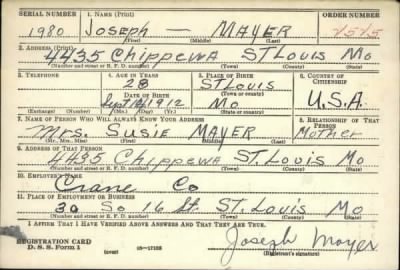 SERIAL NUMBER 1. NAME (Print) ORDER NUMBER
1980 Joseph — MAYER
(First) (Middle) (Last)
2. ADDRESS (Print)
4435 Chippewa St Louis Mo
(Number and street or R. F. D. number) (Town) (County) (State)
3. TELEPHONE 4. AGE IN YEARS 5. PLACE OF BIRTH 6. COUNTRY OF CITIZENSHIP
28 St Louis
DATE OF BIRTH (Town or county)
1912 Mo U.S.A.
(Exchange) (Number) (Mo.) (Day) (Yr.) (State or country)
7. NAME OF PERSON WHO WILL ALWAYS KNOW YOUR ADDRESS 8. RELATIONSHIP OF THAT PERSON
Mrs. Susie MAYER Mother
(Mr., Mrs., Miss) (First) (Middle) (Last)
9. ADDRESS OF THAT PERSON
4435 Chippewa St. Louis Mo
(Number and street or R. F. D. number) (Town) (County) (State)
10. EMPLOYER'S NAME
Crane Co
11. PLACE OF EMPLOYMENT OR BUSINESS
30 So 16 St. St. Louis Mo
(Number and street or R. F. D. number) (Town) (County) (State)
I AFFIRM THAT I HAVE VERIFIED ABOVE ANSWERS AND THAT THEY ARE TRUE.
REGISTRATION CARD
D. S. S. Form 1 (over) Joseph Mayer
(Registrant's signature)